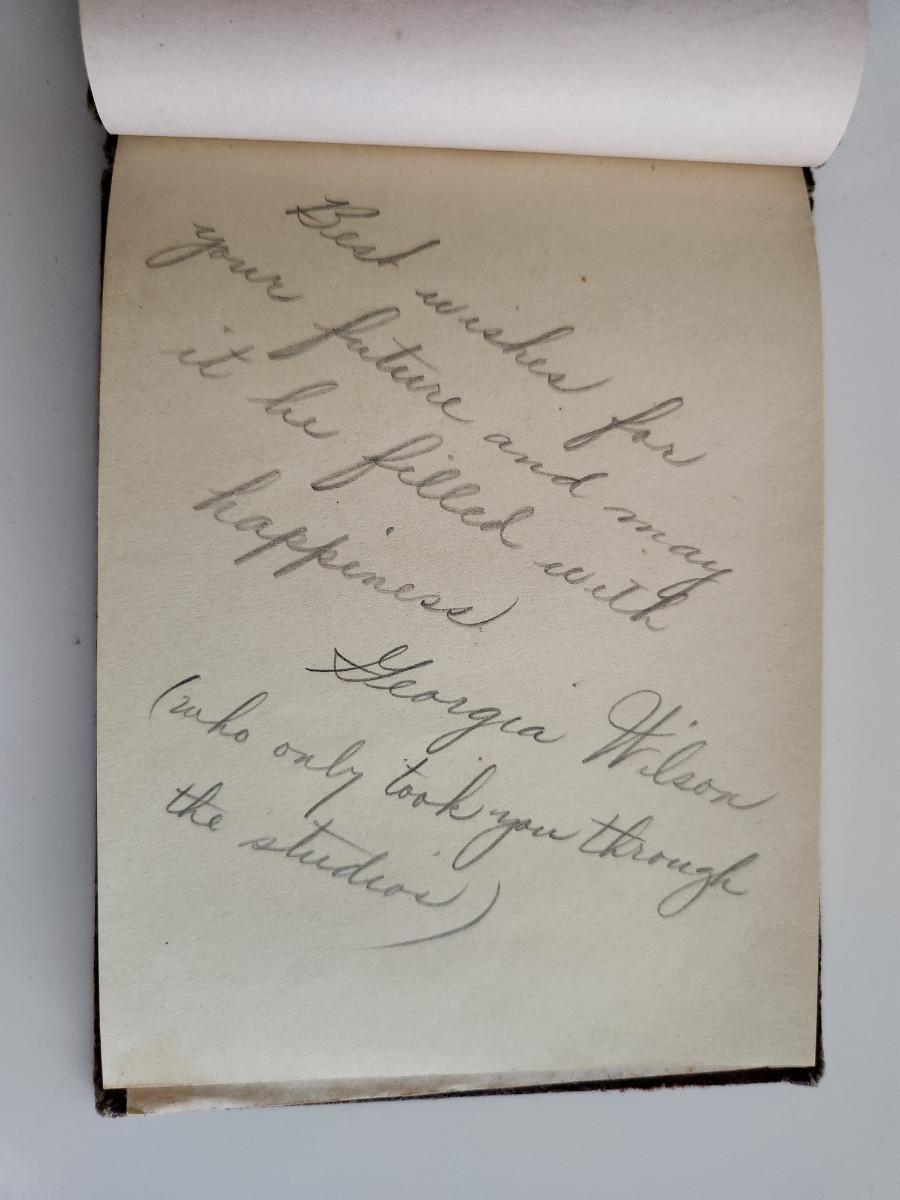 Best wishes for
your future and may
it be filled with
happiness.
Georgia Wilson
(who only took you through
the studios)